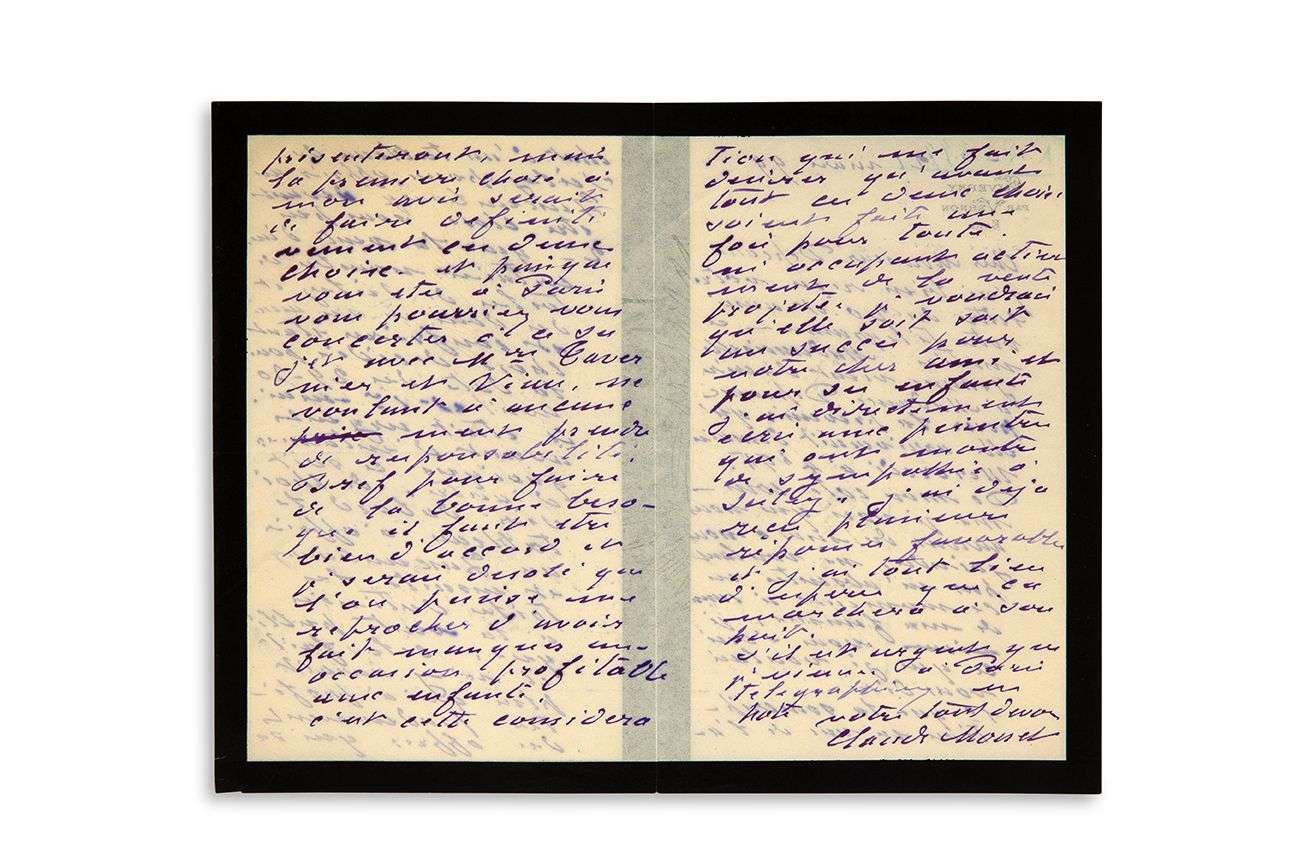 présenteront, mais
la première chose à
mon avis serait
de faire définiti
vement ce deme
choix. et puisque
vous êtes à Paris
vous pourriez vous
concerter à ce su
jet avec Mrs Taver
nier et Viau, ne
voulant à aucune
ment prendre
de responsabilité.
Bref pour faire
de la bonne beso-
gne il faut être
bien d'accord et
je serais désolé que
l'on puisse me
reprocher d'avoir
fait manquer une
occasion profitable
aux enfants.
c'est cette considéra
tion qui me fait
désirer qu'avant
tout ce deme choix
soient faits une
fois pour toute.
m'occupant active
ment de la vente
projetée je voudrais
qu'elle soit soit
un succès pour
notre cher ami et
pour ses enfants
j'ai directement
écrit aux peintres
qui ont montré
de sympathie à
Sisley, j'ai déjà
reçu plusieurs
réponses favorables
et j'ai tout lieu
d'espérer que ça
marchera à son
hait.
s'il est urgent que
je vienne à Paris
télégraphiez un
mot votre tout dévoué
Claude Monet